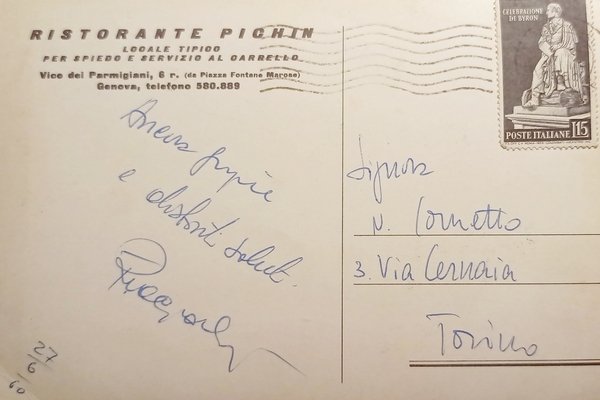 RISTORANTE PICHIN
LOCALE TIPICO
PER SPIEDO E SERVIZIO AL CARRELLO
Vico dei Parmigiani, 6 r. (da Piazza Fontane Marose)
Genova, telefono 580.889
CELEBRAZIONE
DI BYRON
POSTE ITALIANE L15
Ancora grazie
e distinti saluti.
27/6/60
Signora
N. Cornetto
3. Via Cernaia
Torino